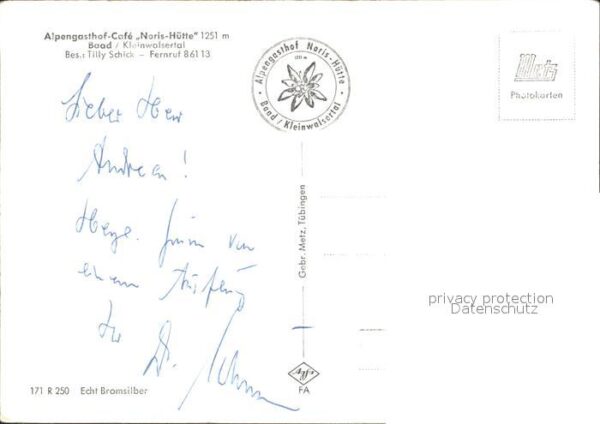 Alpengasthof-Café „Noris-Hütte" 1251 m
Baad / Kleinwalsertal
Bes.: Tilly Schick – Fernruf 86113
Alpengasthof Noris-Hütte
1251 m
Baad / Kleinwalsertal
Metz
Photokarten
Lieber Herr
Andreen!
Herzl. von
einem Ausflug
Ihr
Gebr. Metz, Tübingen
privacy protection
Datenschutz
171 R 250 Echt Bromsilber
FA